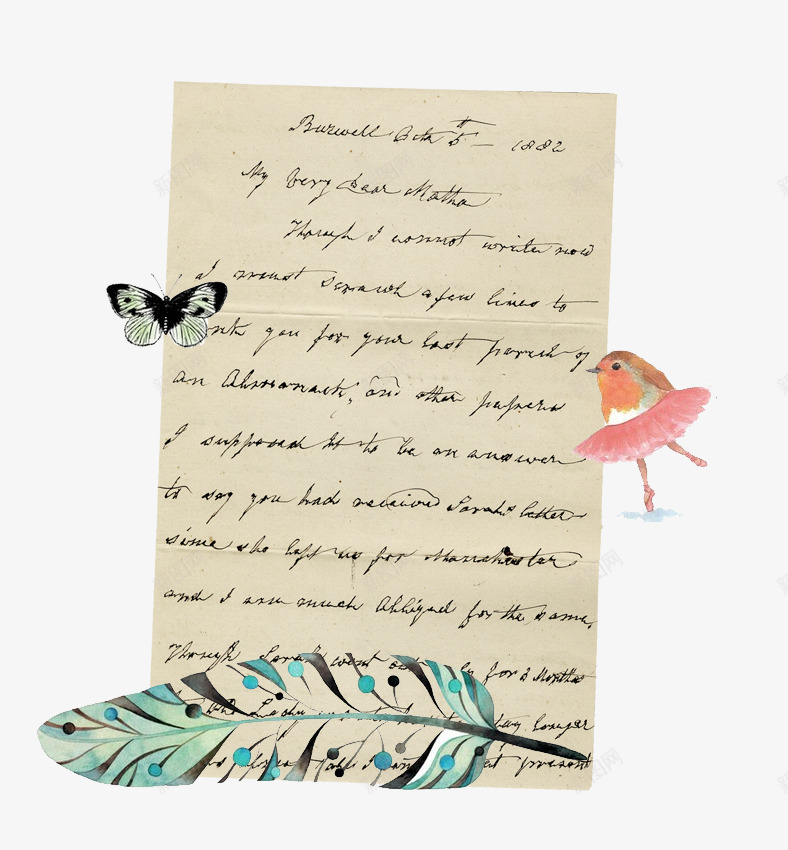 Burwell Octr 5th – 1882
My Very Dear Matha
Though I cannot write now
I must scrawl a few lines to
you for your last parcel of
an Almanack, and other papers
I supposed it to be an answer
to say you had received Sarah's letter
since she left us for Manchester
and I am much obliged for the same,
Though Sarah went for 2 Months
longer
I at present